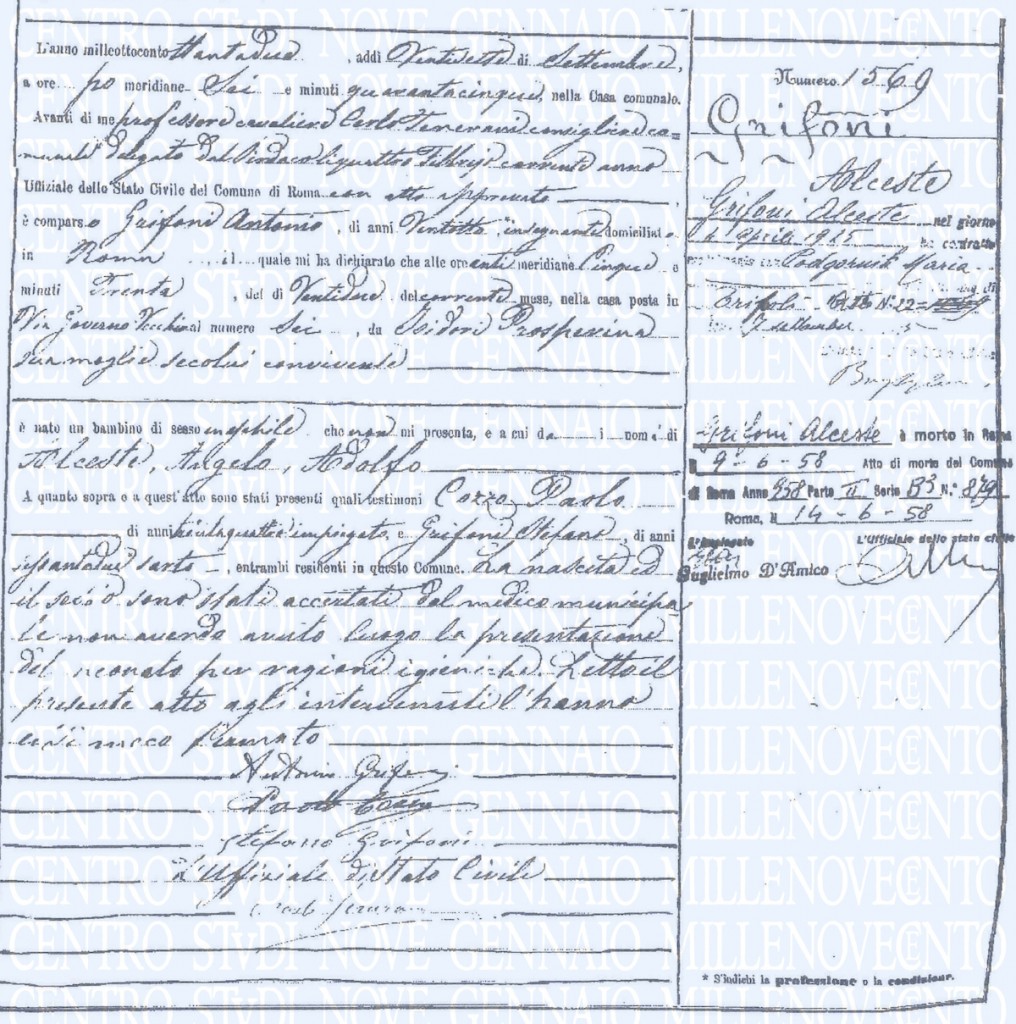 L'anno milleottocento ttantadue, addì Ventisette di Settembre,
a ore po meridiane Sei e minuti quarantacinque, nella Casa comunale.
Avanti di me professore cavaliere Carlo Tenerani consigliere co=
munale delegato dal Sindaco li quattro Febbrajo corrente anno
Uffiziale dello Stato Civile del Comune di Roma con atto approvato
è comparso Grifoni Antonio, di anni Ventotto, insegnante domiciliato
in Roma il quale mi ha dichiarato che alle ore anti meridiane Cinque e
minuti Trenta, del dì Ventidue del corrente mese, nella casa posta in
Via Governo Vecchio al numero Sei, da Isidori Prosperina
sua moglie secolui convivente
è nato un bambino di sesso maschile che non mi presenta, e a cui da i nomi di
Alceste, Angelo, Adolfo
A quanto sopra e a quest'atto sono stati presenti quali testimoni Cozzo Paolo
di anni impiegato, e Grifoni Stefano, di anni
sessantadue sarto, entrambi residenti in questo Comune. La nascita ed
il sesso sono stati accertati dal medico municipa
le non avendo avuto luogo la presentazione
del neonato per ragioni igieniche. Letto il
presente atto agli intervenuti l'hanno
essi meco firmato
Antonio Grifoni
Paolo Cozzo
Stefano Grifoni
L'Uffiziale di Stato Civile
Carlo Tenerani
Numero 1569
Grifoni
Alceste
Grifoni Alceste nel giorno
Aprile 1915 ha contratto
matrimonio con Podgornik Maria
Tripoli N. 22
7 settembre
Grifoni Alceste è morto in Roma
il 9-6-58 Atto di morte del Comune
di Roma Anno 958 Parte II Serie B3 N.° 879
Roma, li 14-6-58
L'Impiegato L'Ufficiale dello stato civile
Guglielmo D'Amico
* S'indichi la professione o la condizione.
CENTRO STVDI NOVE GENNAIO MILLENOVECENTO